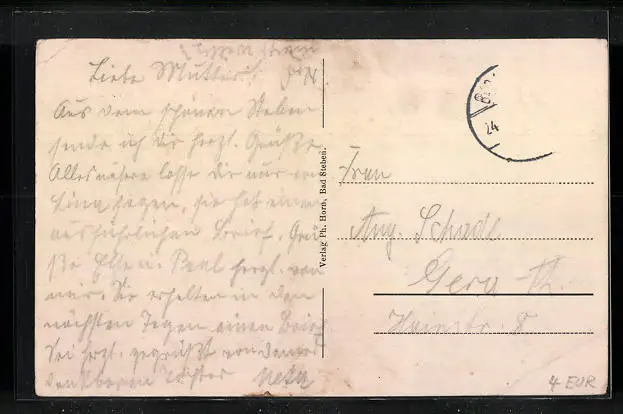 Liebe Mutter!
Aus dem schönen Steben
sende ich dir herzl. Grüße.
Alles nähere lasse dir nur von
Lina sagen, sie hat einen
ausführlichen Brief. Grü-
ße Ella u. Paul herzl. von
mir. Sie erhalten in den
nächsten Tagen einen Brief
Sei herzl. gegrüßt von deiner
dankbaren Tochter
Verlag Ph. Horn, Bad Steben.
24
Frau
Aug. Schade
Gera Th.
Hainstr. 8
4 EUR